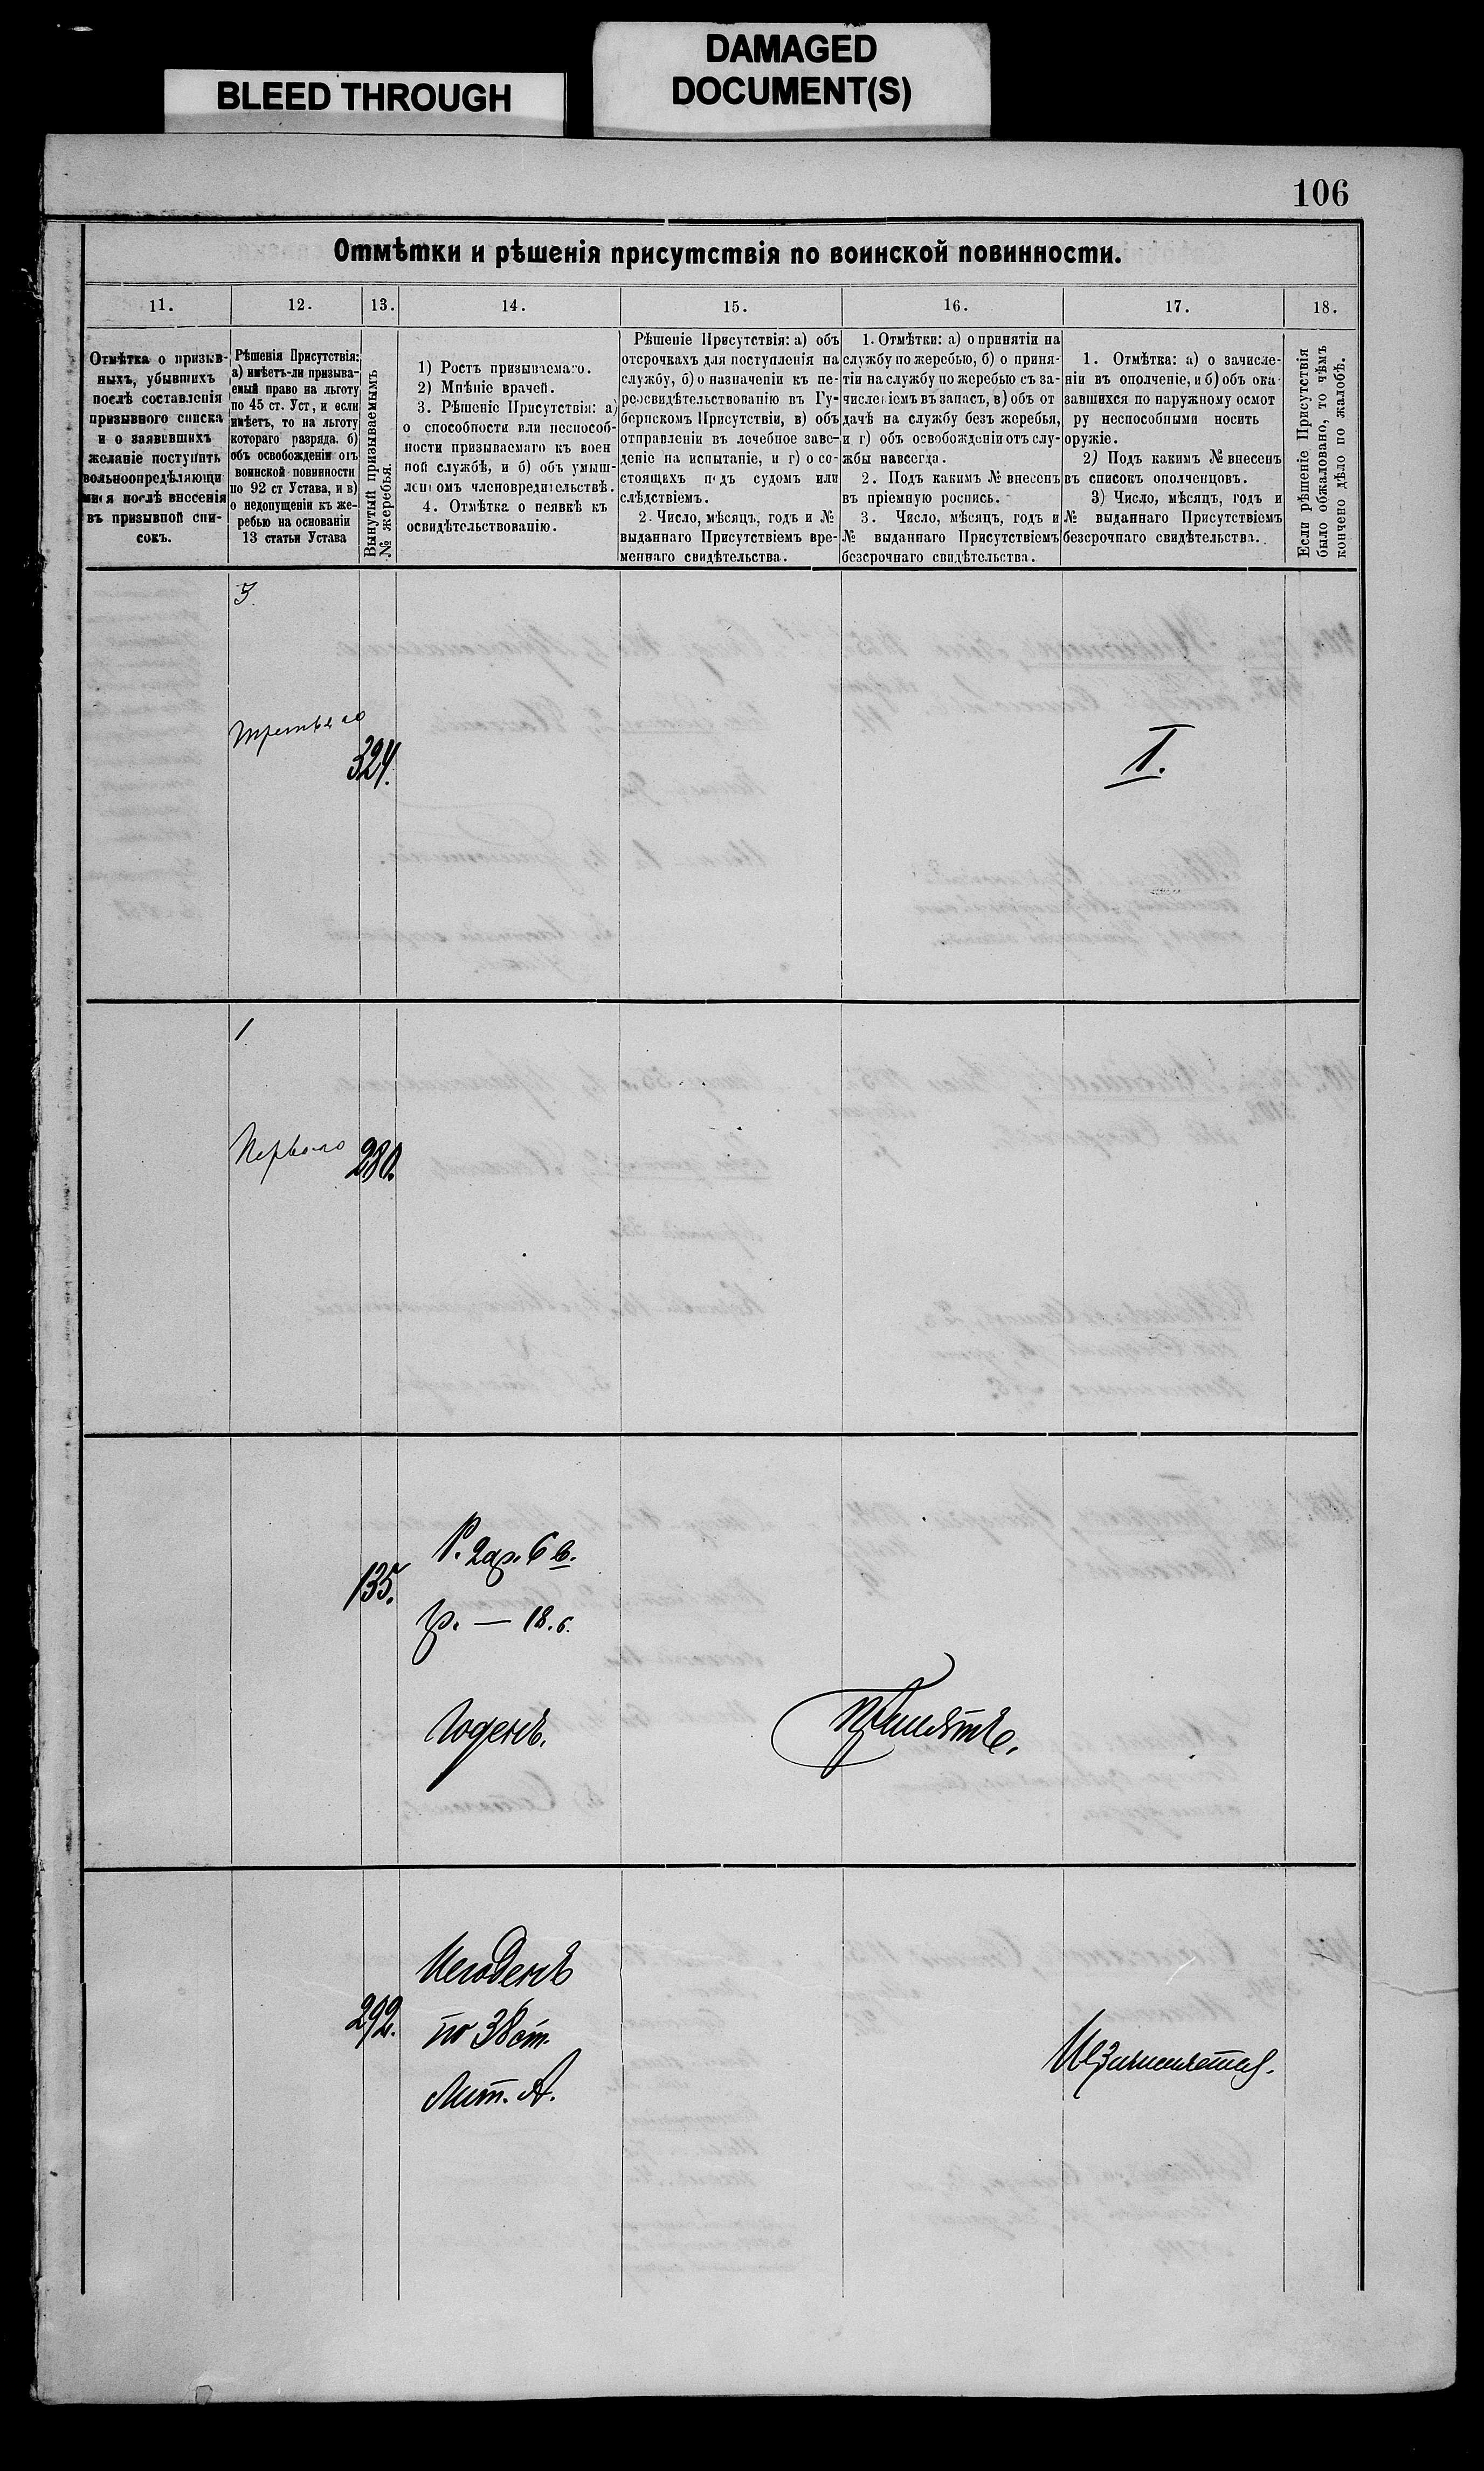 BLEED THROUGH
DAMAGED
DOCUMENT(S)
106
Отмѣтки и рѣшенія присутствія по воинской повинности.
11.
12.
13.
14.
15.
16.
17.
18.
Отмѣтка о призыв-
ныхъ, убывшихъ
послѣ составленія
призывного списка
и о заявившихъ
желаніе поступить
вольноопредѣляющи
мися послѣ внесенія
въ призывной спи-
сокъ.
Рѣшенія Присутствія:
а) имѣетъ-ли призыва-
емый право на льготу
по 45 ст. Уст, и если
имѣетъ, то на льготу
котораго разряда. б)
объ освобожденіи отъ
воинской повинности
по 92 ст Устава, и в)
о недопущеніи къ же-
ребью на основаніи
13 статьи Устава
Вынутый призываемымъ
№ жеребья.
1) Ростъ призываемаго.
2) Мнѣніе врачей.
3. Рѣшеніе Присутствія: а)
о способности или неспособ-
ности призываемаго къ воен
ной службѣ, и б) объ умыш-
ленномъ членовредительствѣ.
4. Отмѣтка о неявкѣ къ
освидѣтельствованію.
Рѣшеніе Присутствія: а) объ
отсрочкахъ для поступленія на
службу, б) о назначеніи къ пе-
реосвидѣтельствованію въ Гу-
бернскомъ Присутствіи, в) объ
отправленіи въ лечебное заве-
деніе на испытаніе, и г) о со-
стоящихъ подъ судомъ или
слѣдствіемъ.
2. Число, мѣсяцъ, годъ и №
выданнаго Присутствіемъ вре-
меннаго свидѣтельства.
1. Отмѣтки: а) о принятіи на
службу по жеребью, б) о приня-
тіи на службу по жеребью съ за-
численіемъ въ запасъ, в) объ от
дачѣ на службу безъ жеребья,
и г) объ освобожденіи отъ слу-
жбы навсегда.
2. Подъ какимъ № внесенъ
въ пріемную роспись.
3. Число, мѣсяцъ, годъ и
№ выданнаго Присутствіемъ
безсрочнаго свидѣтельства.
1. Отмѣтка: а) о зачисле-
ніи въ ополченіе, и б) объ ока
завшихся по наружному осмот
ру неспособными носить
оружіе.
2) Подъ какимъ № внесенъ
въ списокъ ополченцовъ.
3) Число, мѣсяцъ, годъ и
№ выданнаго Присутствіемъ
безсрочнаго свидѣтельства.
Если рѣшеніе Присутствія
было обжаловано, то чѣмъ
кончено дѣло по жалобѣ.
3.
третьяго
324.
I.
1
Перваго
280.
135.
Р. 2 ар. 6 в.
гр. — 18. в.
Годенъ.
Принятъ.
292.
Негоденъ
по 38 ст.
Лит. А.